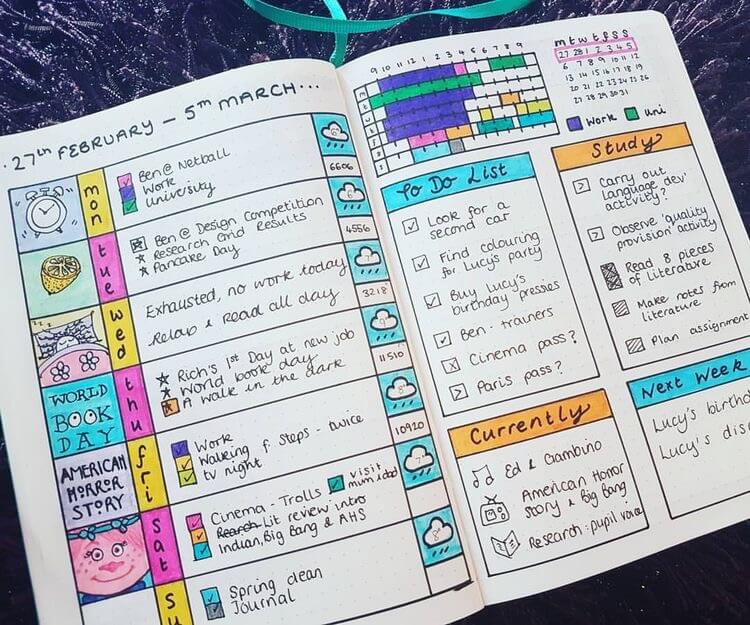 27th FEBRUARY - 5TH MARCH...
mon
Ben @ Netball
Work
University
6606
tue
Ben @ Design Competition
Research Grid Results
Pancake Day
4556
wed
Exhausted, no work today
Relax & Read all day
3218
WORLD
BOOK
DAY
thu
Rich's 1st Day at new job
World book day
A walk in the dark
11510
AMERICAN
HORROR
STORY
fri
Work
Walking f. Steps - twice
tv night
10920
sat
Cinema - Trolls
visit
mum & dad
Lit review intro
Indian, Big Bang & AHS
su
Spring clean
Journal
9 10 11 12 1 2 3 4 5 6 7 8 9
m
t
w
t
f
s
s
Work
Uni
m t w t f s s
27 28 1 2 3 4 5
6 7 8 9 10 11 12
13 14 15 16 17 18 19
20 21 22 23 24 25 26
27 28 29 30 31
To Do List
Look for a
second car
Find colouring
for Lucy's party
Buy Lucy's
birthday presses
Ben - trainers
Cinema pass?
Paris pass?
Study
Carry out
language dev'
activity?
Observe 'quality
provision' activity
Read 8 pieces
of Literature
Make notes from
literature
Plan assignment
Currently
Ed & Gambino
American Horror
Story & Big Bang
Research: pupil voice
Next Week
Lucy's birthd
Lucy's dis